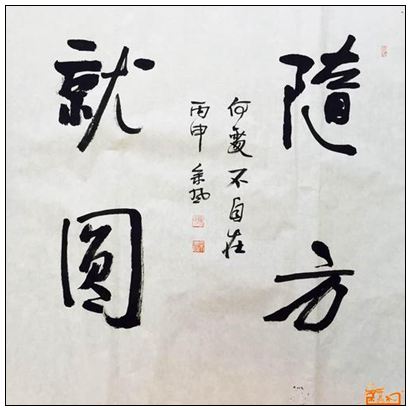 隨方
就圓
何處不自在
丙申